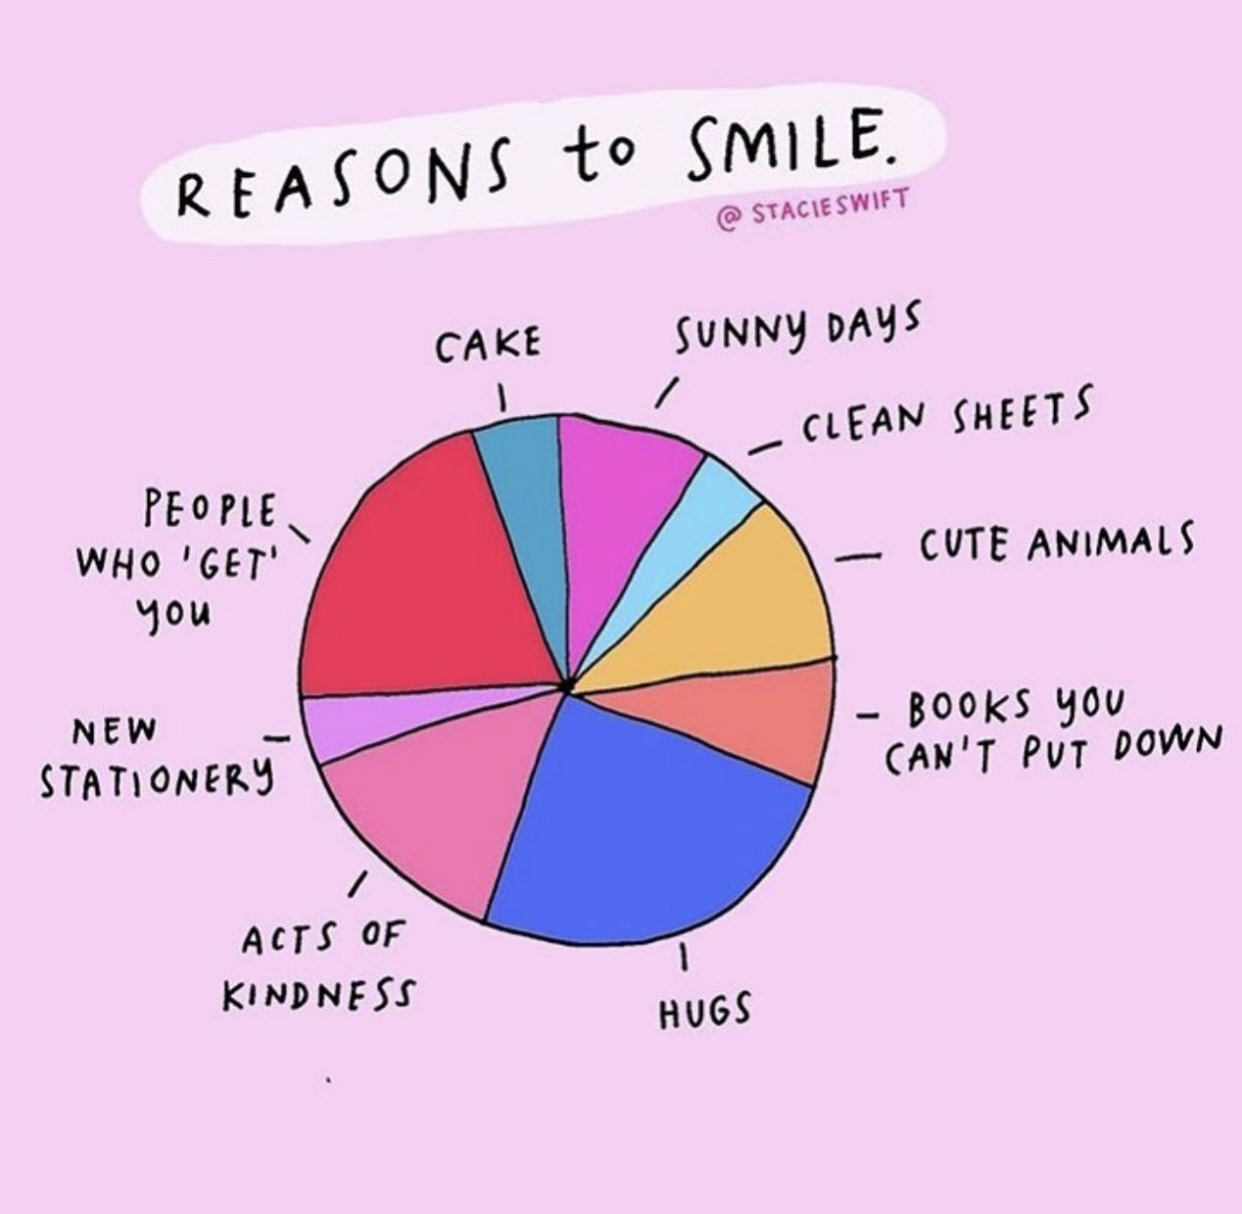 REASONS to SMILE.
@STACIESWIFT
CAKE
SUNNY DAYS
CLEAN SHEETS
CUTE ANIMALS
BOOKS YOU
CAN'T PUT DOWN
HUGS
ACTS OF
KINDNESS
NEW
STATIONERY
PEOPLE
WHO 'GET'
YOU